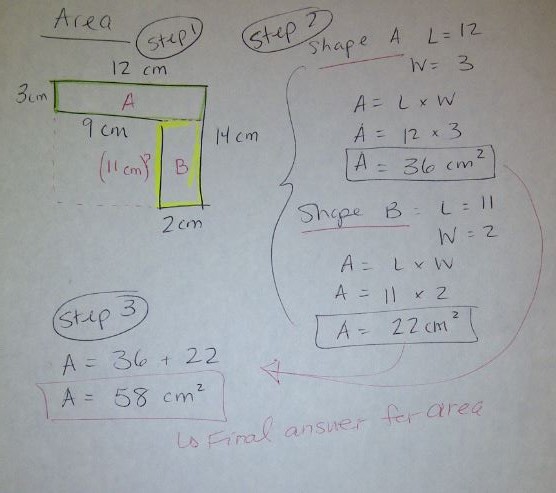 Area
Step 1
12 cm
3cm
A
9 cm
14 cm
(11 cm)?
B
2cm
Step 2
Shape A L = 12
W = 3
A = L x W
A = 12 x 3
A = 36 cm²
Shape B = L = 11
W = 2
A = L x W
A = 11 x 2
A = 22 cm²
Step 3
A = 36 + 22
A = 58 cm²
↳ Final answer for area